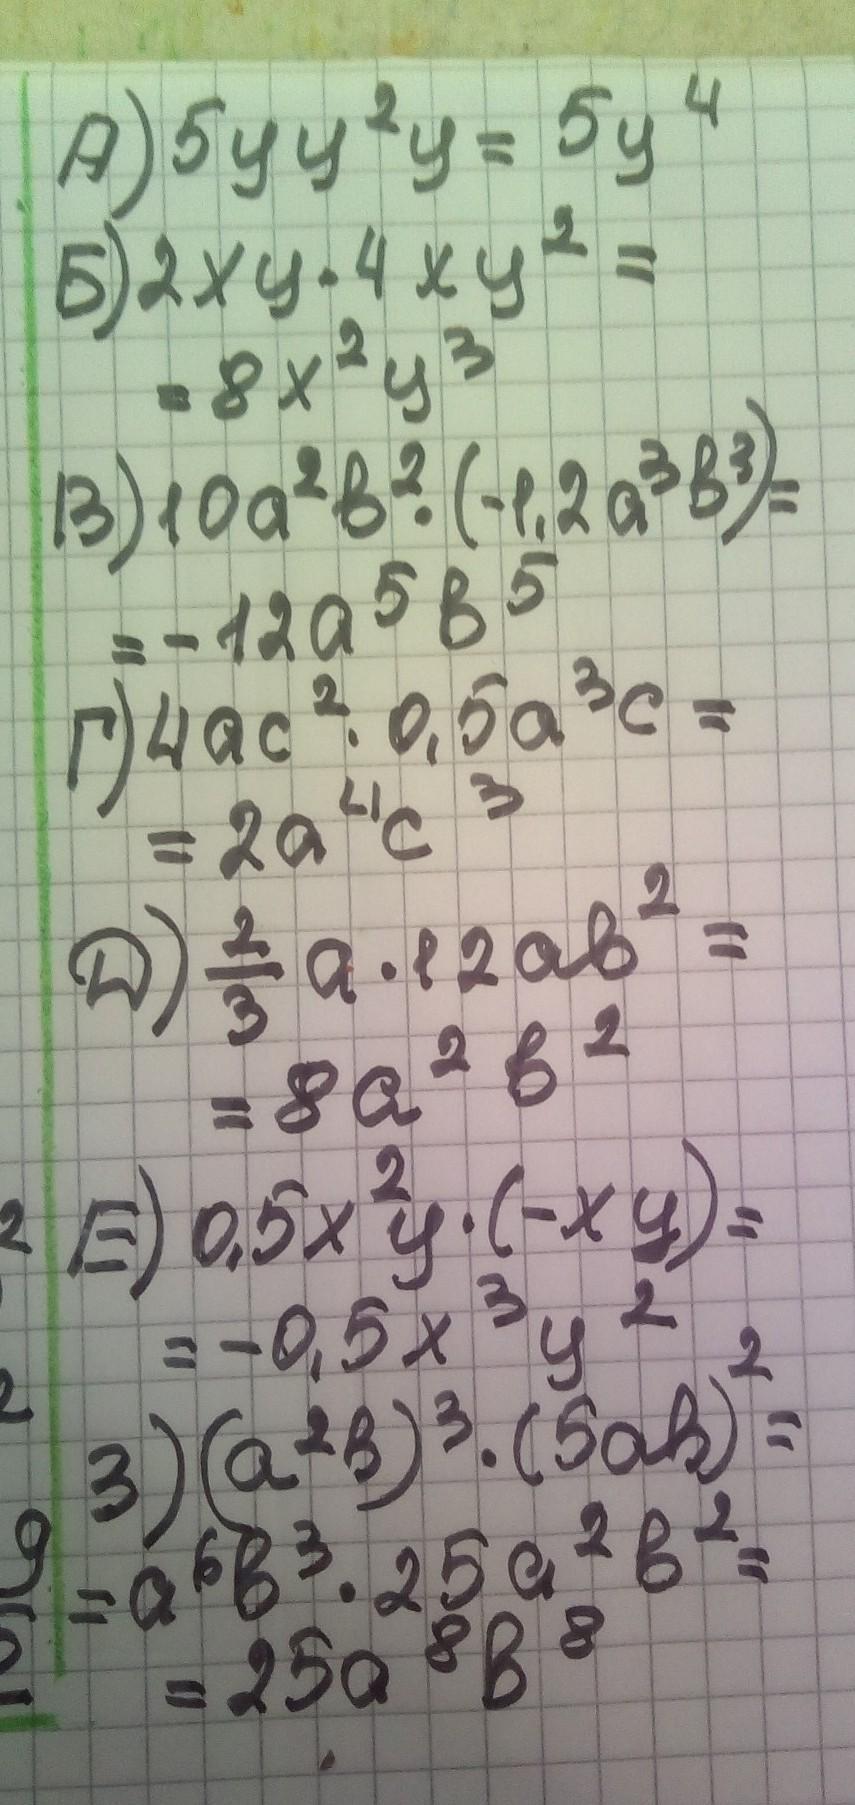 А) 5yy²y = 5y⁴
Б) 2xy · 4xy² =
= 8x²y³
В) 10a²b² · (-1,2a³b³) =
= -12a⁵b⁵
Г) 4ac² · 0,5a³c =
= 2a⁴c³
Д) 2/3 a · 12ab² =
= 8a²b²
Е) 0,5x²y · (-xy) =
= -0,5x³y²
З) (a²b)³ · (5ab)² =
= a⁶b³ · 25a²b² =
= 25a⁸b⁸